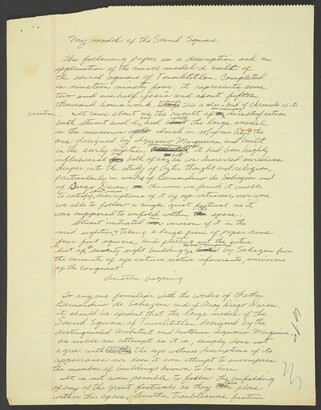 My model of the Sacred Square
The following paper is a description and an
explanation of the small model I built of
the sacred square of Tenochtitlan. Completed
in nineteen ninety four it represents some
two and one half years and about fifteen
thousand hours work. This is a kind of chronicle of its
creation
It came about as the result of dissatisfaction
both Stuart and I had with the large model
in the museum in Mexico City, the
one designed by Ignacio Marquina and built
in the early sixties. It had been highly
influential on both of us, as we immersed ourselves
deeper into the study of Aztec thought and religion,
particularly in works of Bernardino de Sahagun and
of Diego Duran, the more we found it unable
to satisfy descriptions of it by eye witnesses, nor were
we able to follow a single great festival as it
was supposed to unfold within the space.
Stuart initiated a version of it in the
mid eighties, taking a large piece of paper some
four foot square and plotting out the entire
list of seventy eight buildings, by Sahagun from
the accounts of eye witness native informants, survivors
of the conquest
Another beginning
To anyone familiar with the works of Father
Bernardino de Sahagun and of Fray Diego Duran
it should be evident that the large model of the
Sacred Square of Tenochtitlan designed by the
distinguished architect and historian Ignacio Marquina,
as noble an attempt as it is, simply does not
agree with the eye witness descriptions of its
appearance nor does it even attempt to encompass
the number of buildings known to be here.
It is not even possible to follow the unfolding
of any of the great festivals as they took place
within this space. Another troublesome feature